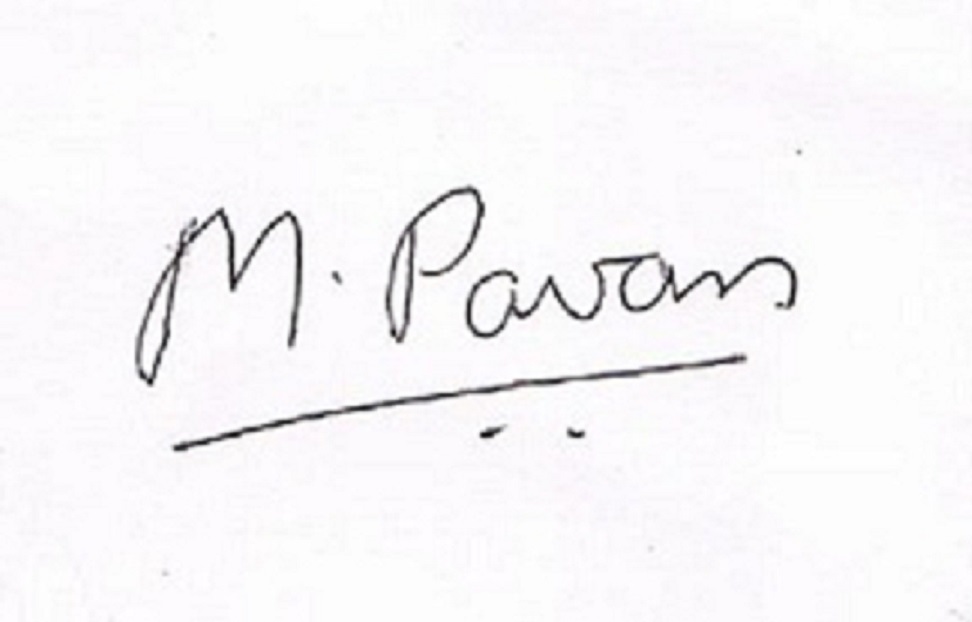 M. Pavan